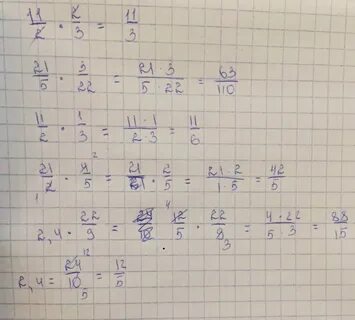 11/2 · 2/3 = 11/3
21/5 · 3/22 = 21·3/5·22 = 63/110
11/2 · 1/3 = 11·1/2·3 = 11/6
21/2 · 4/5 = 21/1 · 2/5 = 21·2/1·5 = 42/5
2,4 · 22/9 = 12/5 · 22/9 = 4·22/5·3 = 88/15
2,4 = 24/10 = 12/5